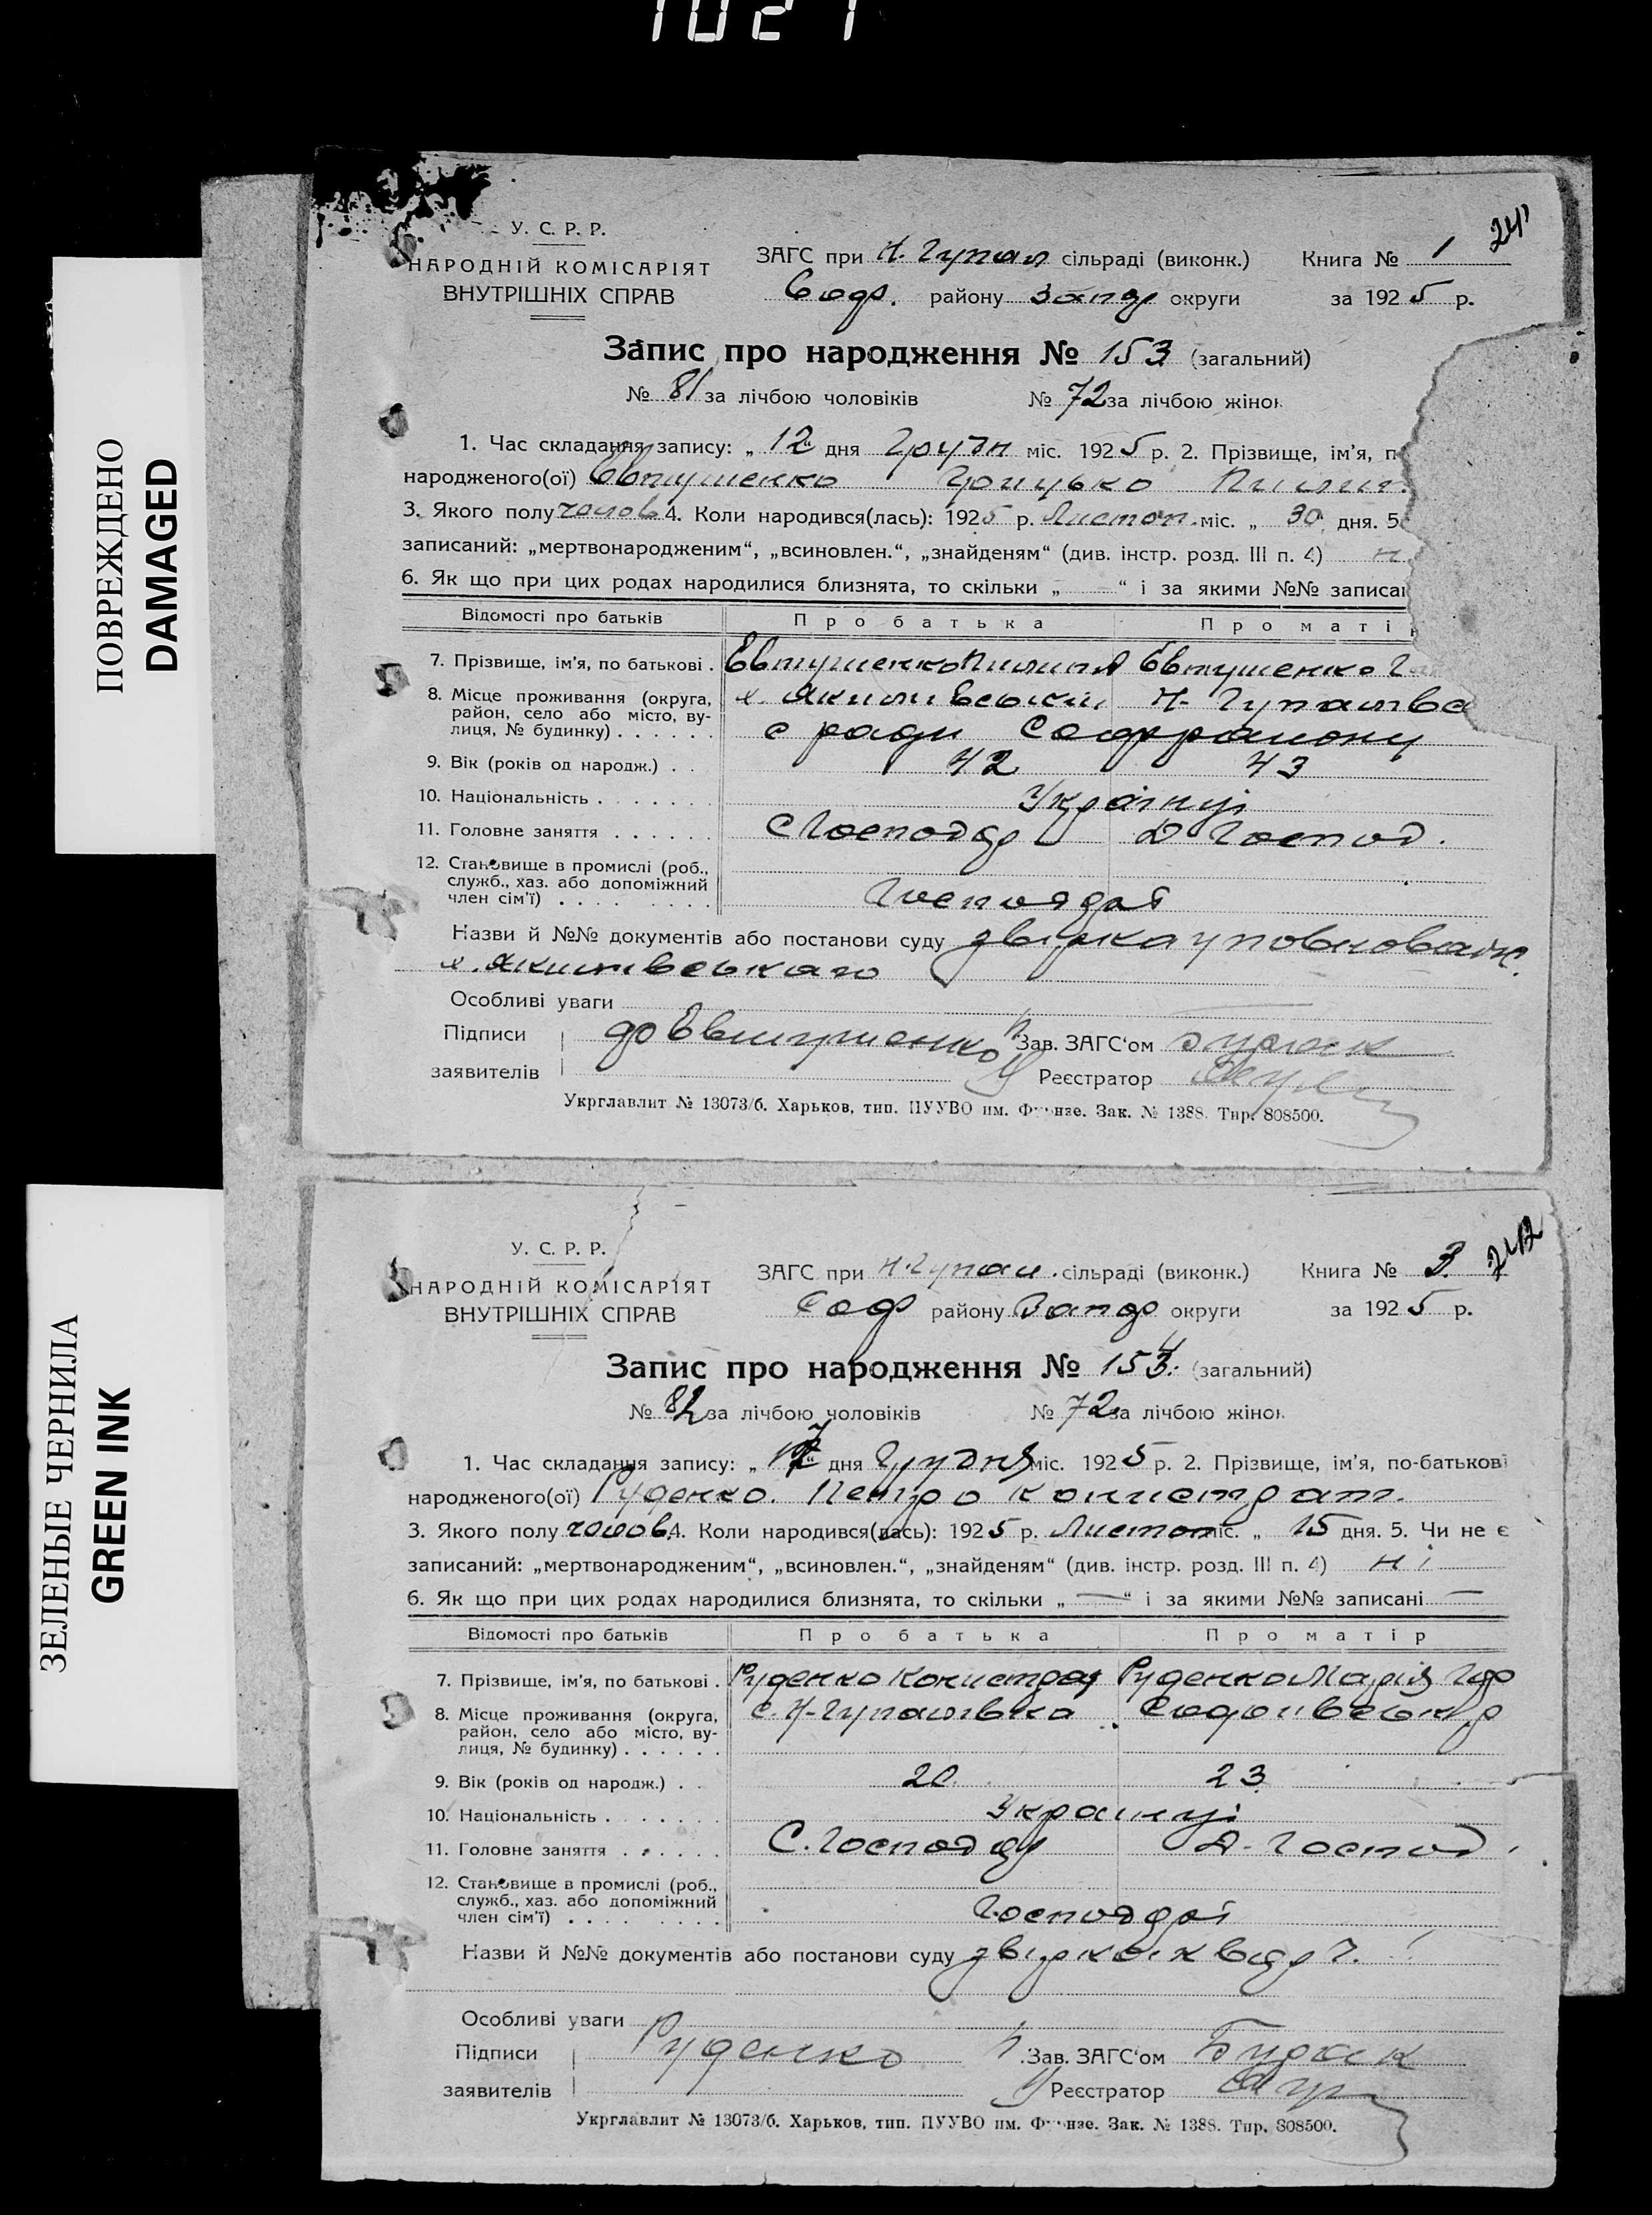 1021
ПОВРЕЖДЕНО
DAMAGED
У. С. Р. Р.
НАРОДНІЙ КОМІСАРІЯТ
ВНУТРІШНІХ СПРАВ
ЗАГС при Н. Гупал сільраді (виконк.)
Соф. району Запор округи
Книга № 1
за 1925 р.
241
Запис про народження № 153 (загальний)
№ 81 за лічбою чоловіків № 72 за лічбою жінок
1. Час складання запису: „ 12 “ дня Грудн міс. 1925 р. 2. Прізвище, ім’я, п
народженого(ої) Євтушенко Грицько Пилип.
3. Якого полу чолов 4. Коли народився(лась): 1925 р. Листоп. міс. „ 30 „ дня. 5
записаний: „мертвонародженим“, „всиновлен.“, „знайденям“ (див. інстр. розд. III п. 4) н
6. Як що при цих родах народилися близнята, то скільки „ — “ і за якими №№ записа
Відомості про батьків Про батька Про маті
7. Прізвище, ім’я, по батькові . Євтушенко Пилип Євтушенко
8. Місце проживання (округа, х. Якилівський Н- Гупалівс
район, село або місто, ву-
лиця, № будинку) . . . . . . с ради Софрраиону
9. Вік (років од народж.) . . 42 43
10. Національність . . . . . . . Українці
11. Головне заняття . . . . . . С Господар Д Господ.
12. Становище в промислі (роб.,
служб., хаз. або допоміжний
член сім’ї) . . . . . . . . Господарі
Назви й №№ документів або постанови суду звірка уповноваж.
Особливі уваги
Підписи до Євтушенко П Зав. ЗАГС‘ом Бурак
заявителів Реєстратор
Укрглавлит № 13073/б. Харьков, тип. ПУУВО им. Фрунзе. Зак. № 1388. Тир. 808500.
ЗЕЛЕНЫЕ ЧЕРНИЛА
GREEN INK
У. С. Р. Р.
НАРОДНІЙ КОМІСАРІЯТ
ВНУТРІШНІХ СПРАВ
ЗАГС при Н. Гупал. сільраді (виконк.)
Соф району Запор округи
Книга № 3
за 1925 р.
242
Запис про народження № 154. (загальний)
№ 82 за лічбою чоловіків № 72 за лічбою жінок
1. Час складання запису: „ 17 “ дня Грудня міс. 1925 р. 2. Прізвище, ім’я, по-батькові
народженого(ої) Руденко. Петро Конистрат.
3. Якого полу чолов. 4. Коли народився(лась): 1925 р. Листоп міс. „ 15 дня. 5. Чи не є
записаний: „мертвонародженим“, „всиновлен.“, „знайденям“ (див. інстр. розд. III п. 4) ні
6. Як що при цих родах народилися близнята, то скільки „ — “ і за якими №№ записані —
Відомості про батьків Про батька Про матір
7. Прізвище, ім’я, по батькові . Руденко Конистрат Руденко Марія
8. Місце проживання (округа, с. Н-Гупалівка Софиївськ р
район, село або місто, ву-
лиця, № будинку) . . . . . .
9. Вік (років од народж.) . . 20 23
10. Національність . . . . . . . Українці
11. Головне заняття . . . . . . С. Господар Д- Господ
12. Становище в промислі (роб.,
служб., хаз. або допоміжний
член сім’ї) . . . . . . . . Господарі
Назви й №№ документів або постанови суду звірка
Особливі уваги
Підписи Руденко П. Зав. ЗАГС‘ом Бурак
заявителів Реєстратор
Укрглавлит № 13073/б. Харьков, тип. ПУУВО им. Фрунзе. Зак. № 1388. Тир. 808500.